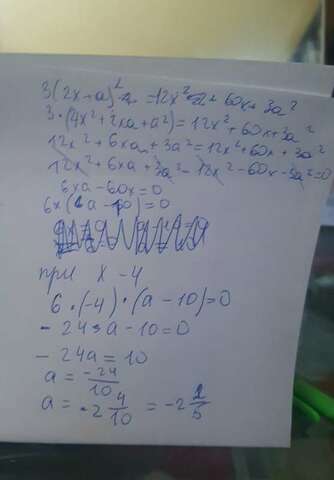 3(2x+a)² = 12x² + 60x + 3a²
3·(4x²+2xa+a²)=12x²+60x+3a²
12x²+6xa+3a²=12x²+60x+3a²
12x²+6xa+3a²-12x²-60x-3a²=0
6xa-60x=0
6x(a-10)=0
при x -4
6·(-4)·(a-10)=0
-24·a-10=0
-24a=10
a = -24/10
a = -2 4/10 = -2 2/5